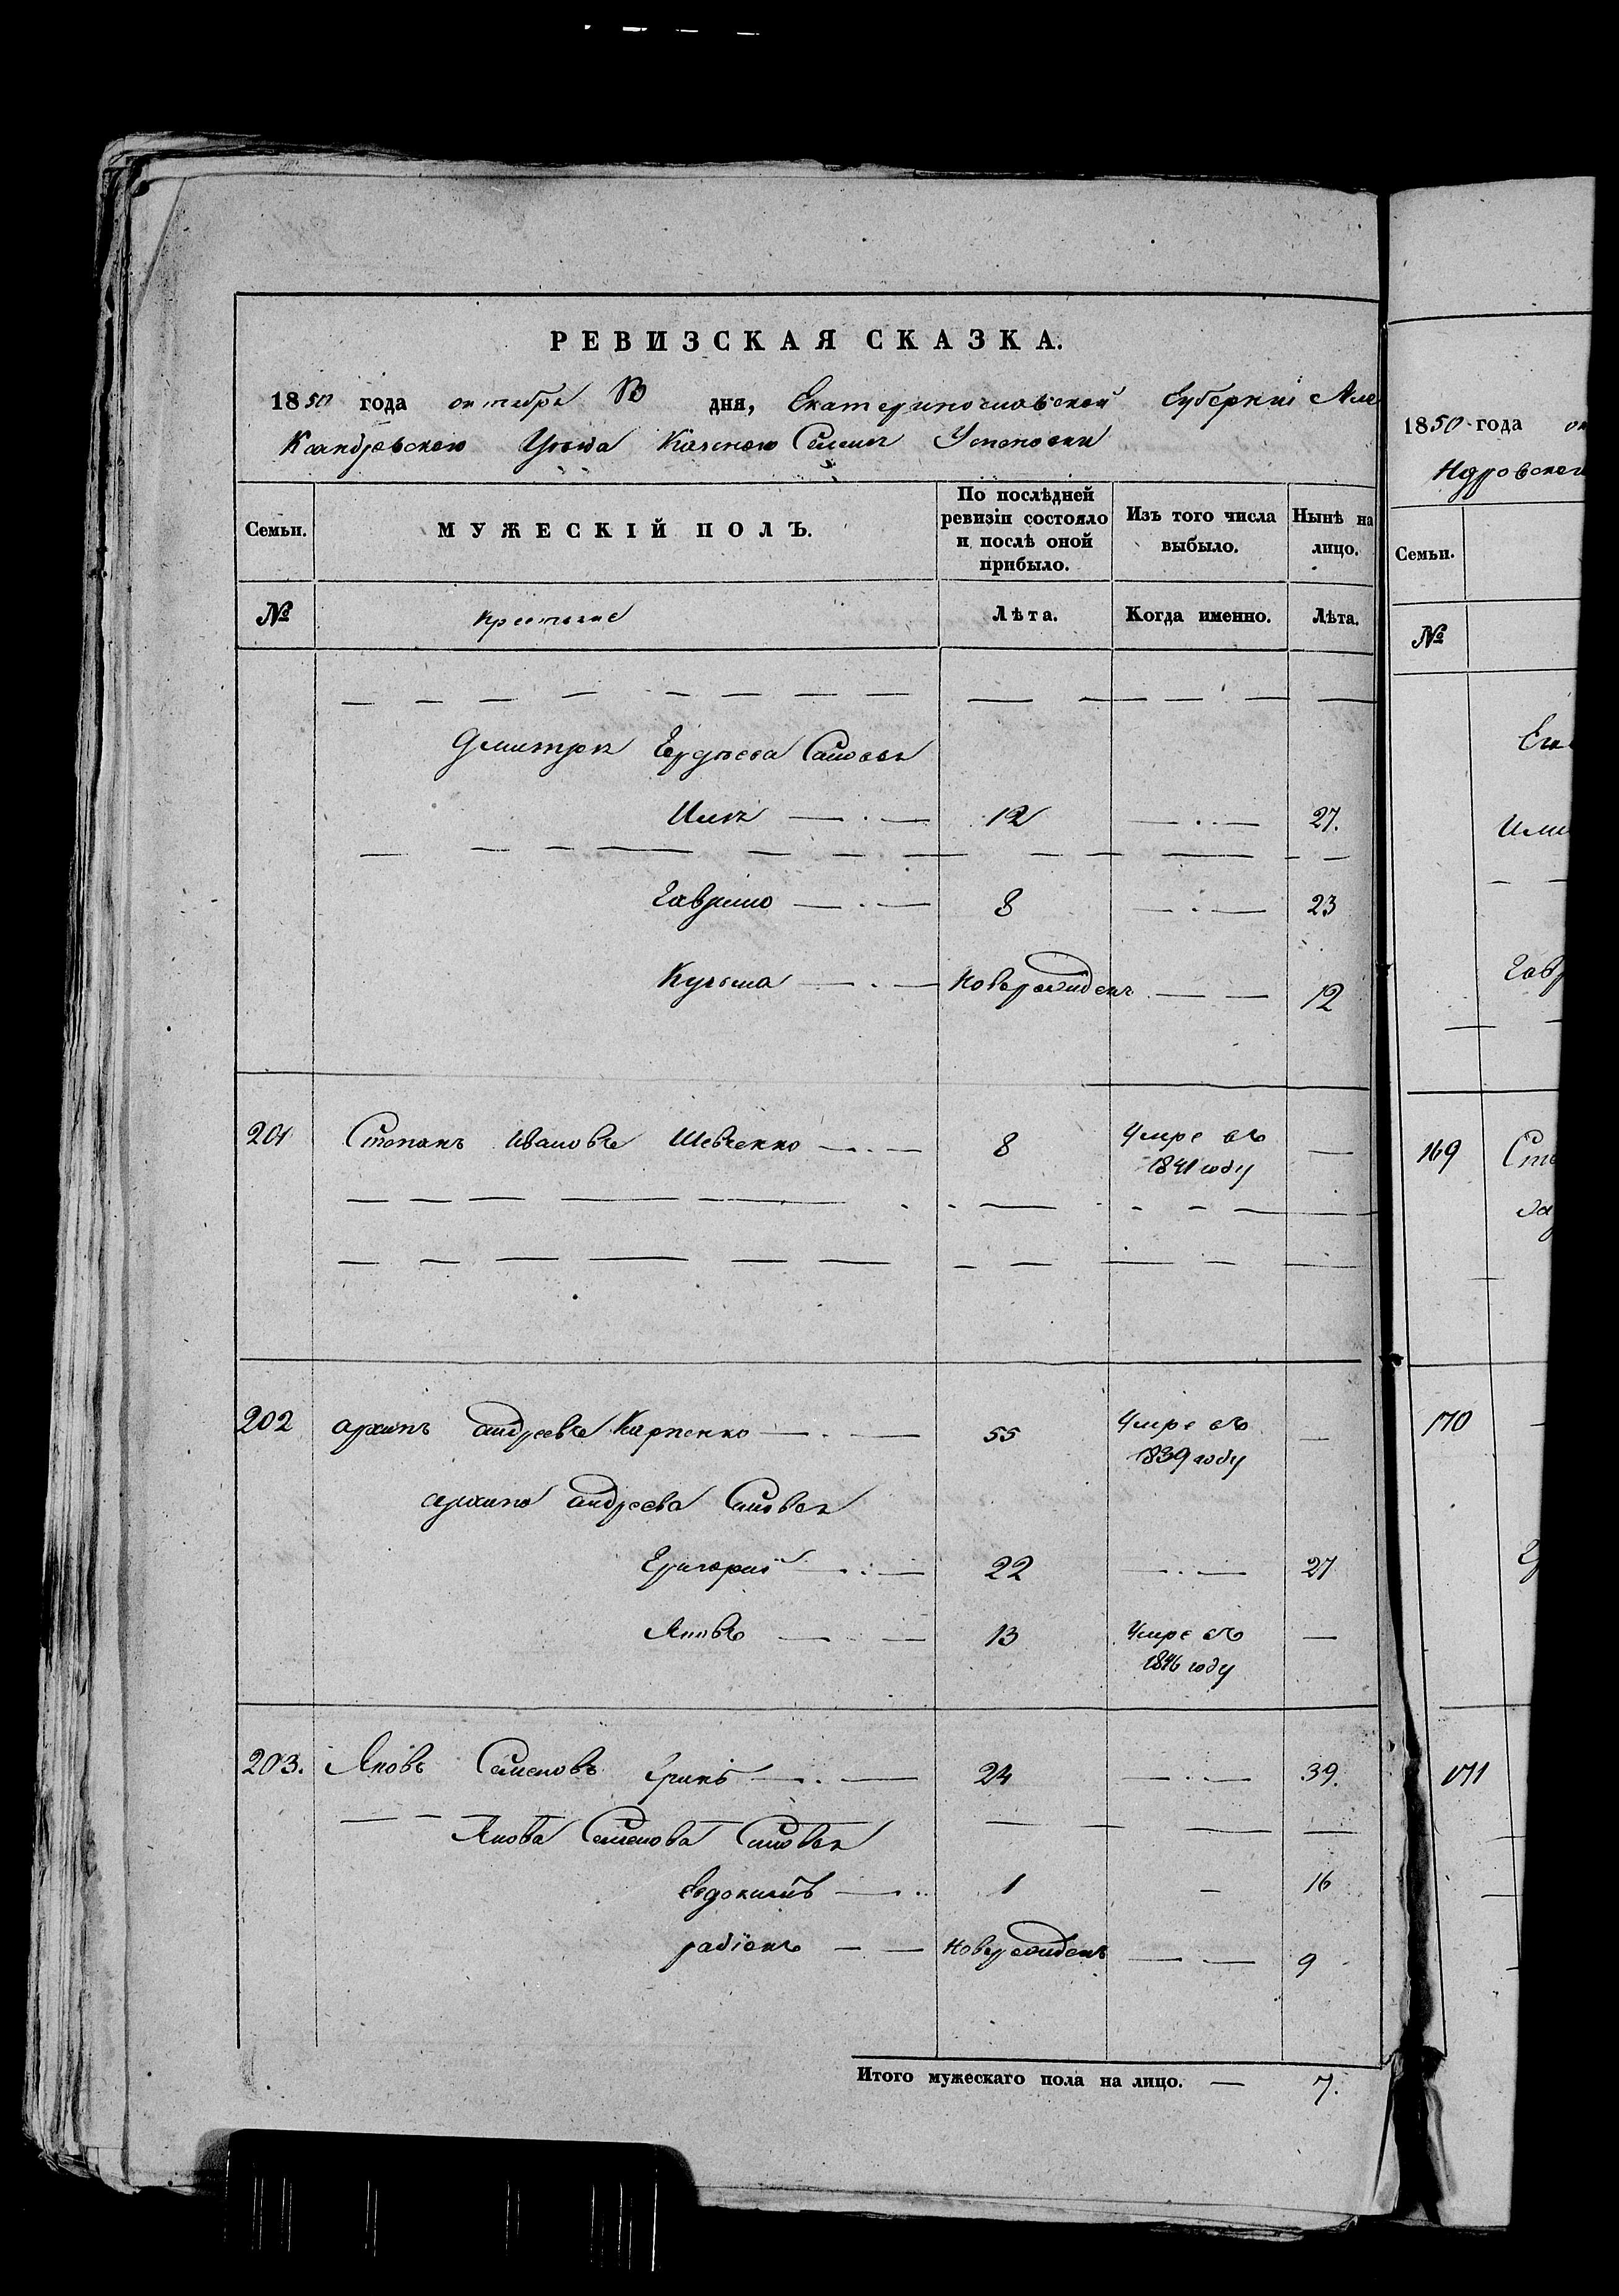 РЕВИЗСКАЯ СКАЗКА.
1850 года октября дня, Екатеринославской Губерніи Але
ксандровского Уезда Казеного Селенія Успеновки
Семьи. МУЖЕСКІЙ ПОЛЪ. По послѣдней ревизіи состояло и послѣ оной прибыло. Изъ того числа выбыло. Нынѣ на лицо.
№ Крестьяне Лѣта. Когда именно. Лѣта.
Дмитрія Сыновья
Илія 12 27.
Гаврило 8 23
Кузьма новорожденъ 12
201 Степанъ Ивановъ Шевченко 8 Умре въ
1841 году
202 архипъ андреевъ Карпенко 55 Умре въ
1839 году
архипа андреева Сыновья
Григорій 22 27
Яковъ 13 Умре въ
1846 году
203. Яковъ Семеновъ 24 39.
Якова Семенова Сыновья
Евдокимъ 1 16
радіонъ новорожденъ 9
Итого мужескаго пола на лицо. — 7.
1850 года
Семьи.
№
169
170
171